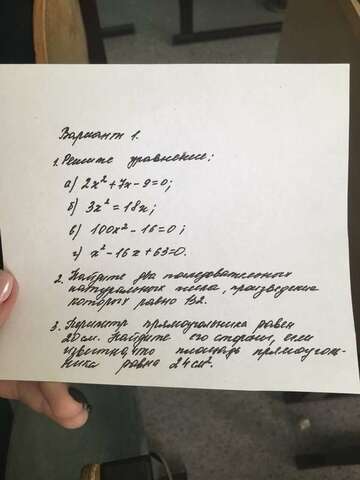 Вариант 1.
1. Решите уравнение:
а) 2x² + 7x - 9 = 0;
б) 3x² = 18x;
в) 100x² - 16 = 0;
г) x² - 16x + 63 = 0.
2. Найдите два последовательных
натуральных числа, произведение
которых равно 132.
3. Периметр прямоугольника равен
20 см. Найдите его стороны, если
известно, что площадь прямоуголь-
ника равна 24 см².